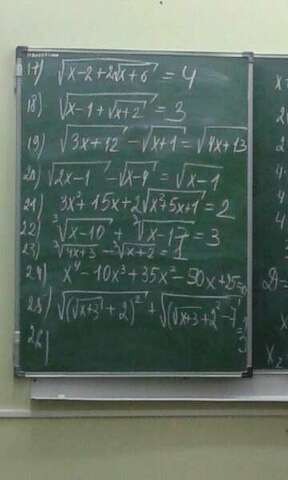 17) √(x-2+2√(x+6)) = 4
18) √(x-1+√(x+2)) = 3
19) √(3x+12) - √(x+1) = √(4x+13)
20) √(2x-1) - √(x-4) = √(x-1)
21) 3x²+15x+2√(x²+5x+1) = 2
22) ³√(x-10) + ³√(x-17) = 3
23) ³√(4x+3) - ³√(x+2) = 1
24) x⁴-10x³+35x²-50x+25=0
25) √((√(x+3)+2)²) + √((√(x+3)+2²-7)
26)
x₂